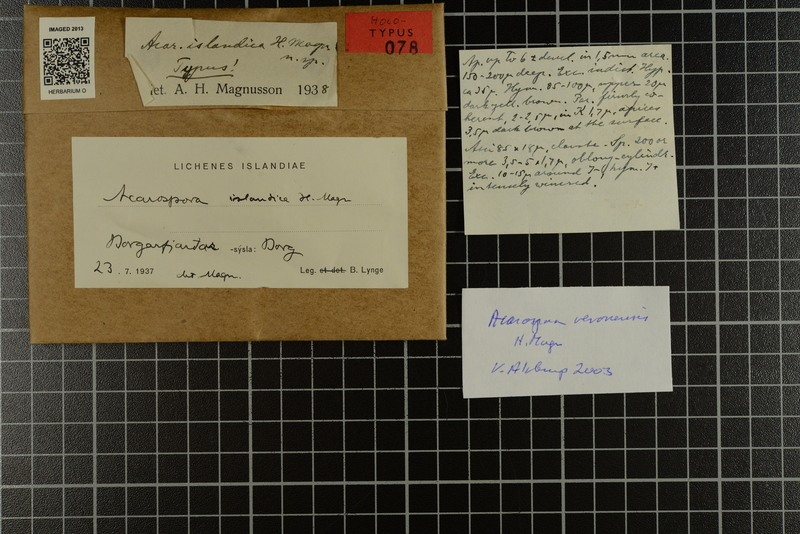 IMAGED 2013
HERBARIUM O
Acar. islandica H. Magn.
n. sp.
Typus!
det. A. H. Magnusson 1938
HOLO-
TYPUS
078
LICHENES ISLANDIAE
Acarospora islandica H. Magn
Borgarfjardar -sýsla: Borg
23. 7. 1937 H. Magn.
Leg. et det. B. Lynge
Ap. up to 6 & deut. in 1,5 mm area.
150-200µ deep. Exc. indist. Hyp.
ca 35µ. Hym. 85-100µ, upper 20µ
dark yell. brown. Par. firmly co-
herent, 2-2,5µ, in K 1,7µ, apices
3,5µ dark brown at the surface.
Asci 85 x 18µ, clavate. Sp. 200 or
more 3,5-5 x 1,7µ, oblong-cylindr.
Exc. 10-15µ around hym. I+
intensely vinered.
Acarospora veronensis
H. Magn
V. Alstrup 2003